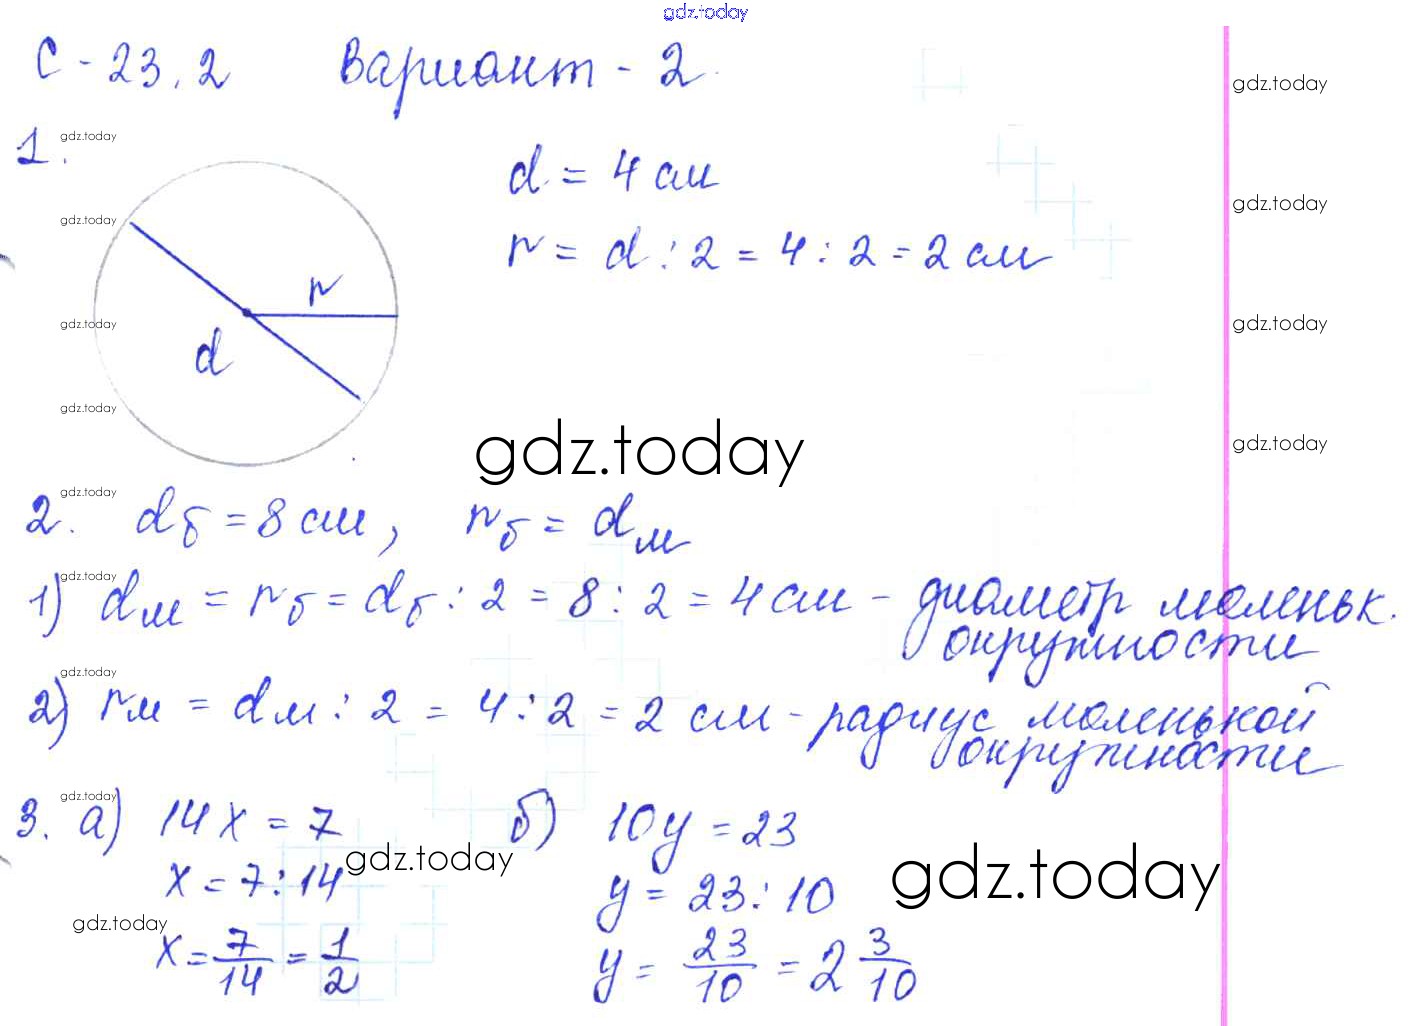 gdz.today
С - 23.2 Вариант - 2.
gdz.today
1.
gdz.today
d = 4 см
gdz.today
gdz.today
r = d : 2 = 4 : 2 = 2 см
r
gdz.today
gdz.today
d
gdz.today
gdz.today
gdz.today
gdz.today
2. dб = 8 см, rб = dм
gdz.today
1) dм = rб = dб : 2 = 8 : 2 = 4 см - диаметр маленьк.
окружности
gdz.today
2) rм = dм : 2 = 4 : 2 = 2 см - радиус маленькой
окружности
gdz.today
3. а) 14x = 7 б) 10y = 23
gdz.today
gdz.today
x = 7 : 14 y = 23 : 10
gdz.today
x = 7/14 = 1/2 y = 23/10 = 2 3/10